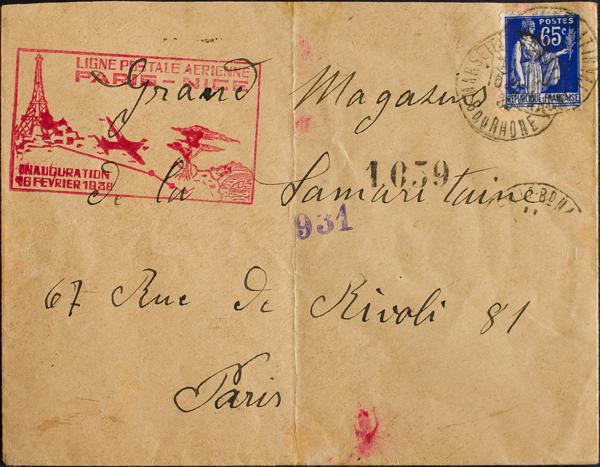 LIGNE POSTALE AERIENNE
PARIS - NICE
INAUGURATION
16 FEVRIER 1938
POSTES
65c
REPUBLIQUE FRANÇAISE
DU RHONE
Grand Magasins
de la Samaritaine
1059
931
67 Rue de Rivoli 81
Paris